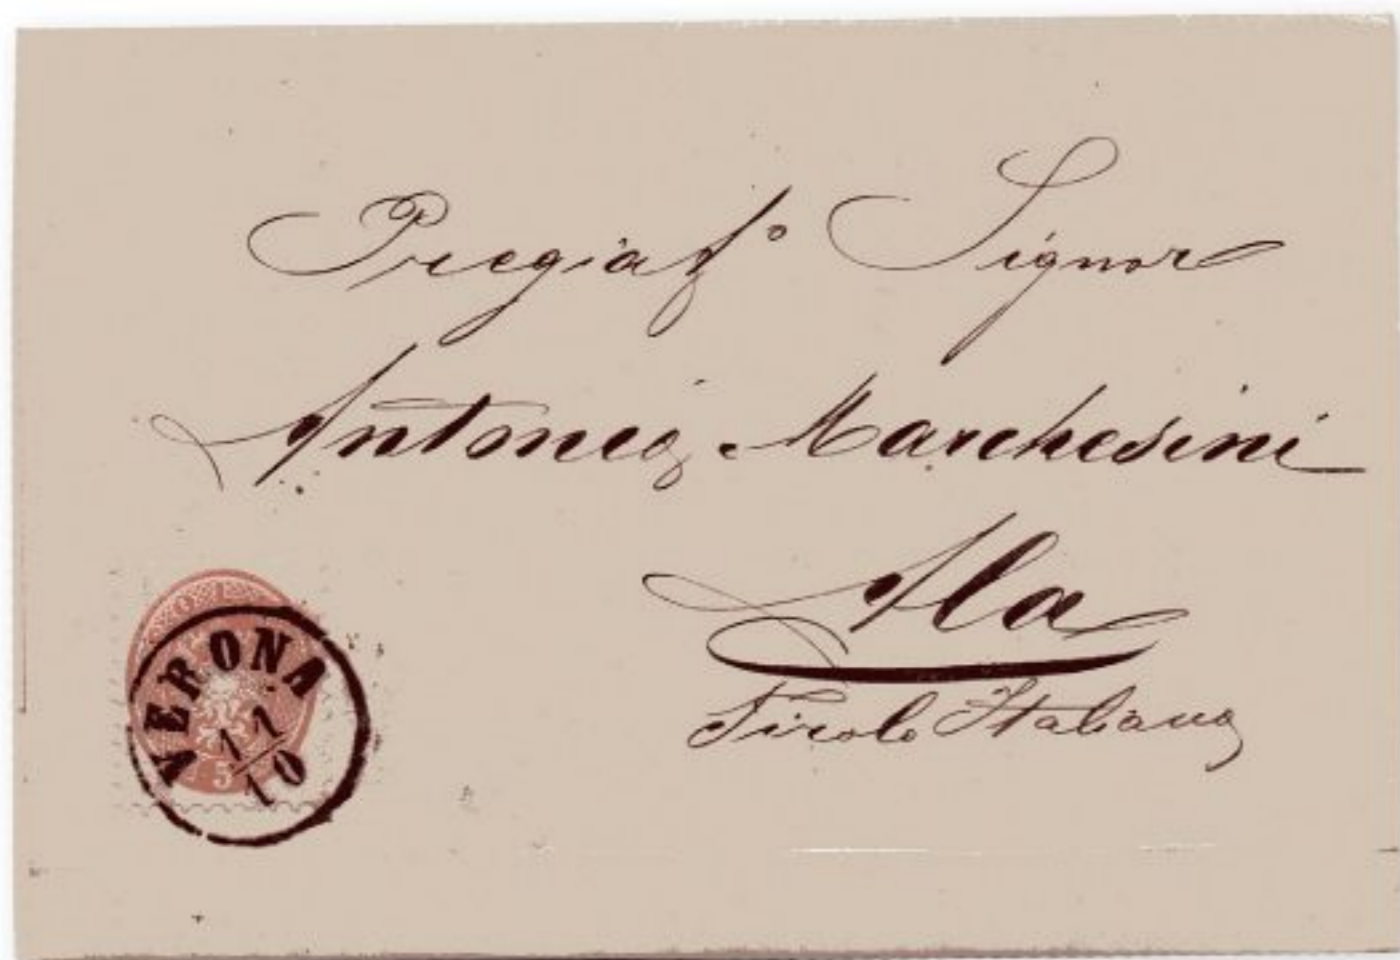 Pregiat.º Signor
Antonio Marchesini
Ala
Tirolo Italiano
VERONA
11
10
5